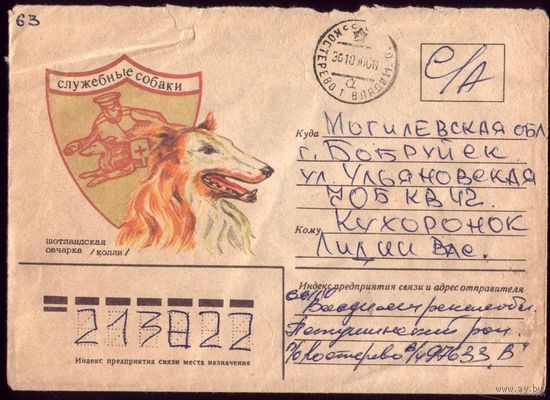 63
СЛУЖЕБНЫЕ СОБАКИ
ШОТЛАНДСКАЯ
ОВЧАРКА /КОЛЛИ/
КОСТЕРЕВО 1
С/А
Куда Могилевская обл
г. Бобруйск
ул. Ульяновская
70Б КВ 42
Кому Кухоронок
Лидии Вас.
Индекс предприятия связи и адрес отправителя
Владимирская обл.
Петушинский рай.
Костерево В/Ч 97633 "В"
213822
Индекс предприятия связи места назначения
www.ay.by